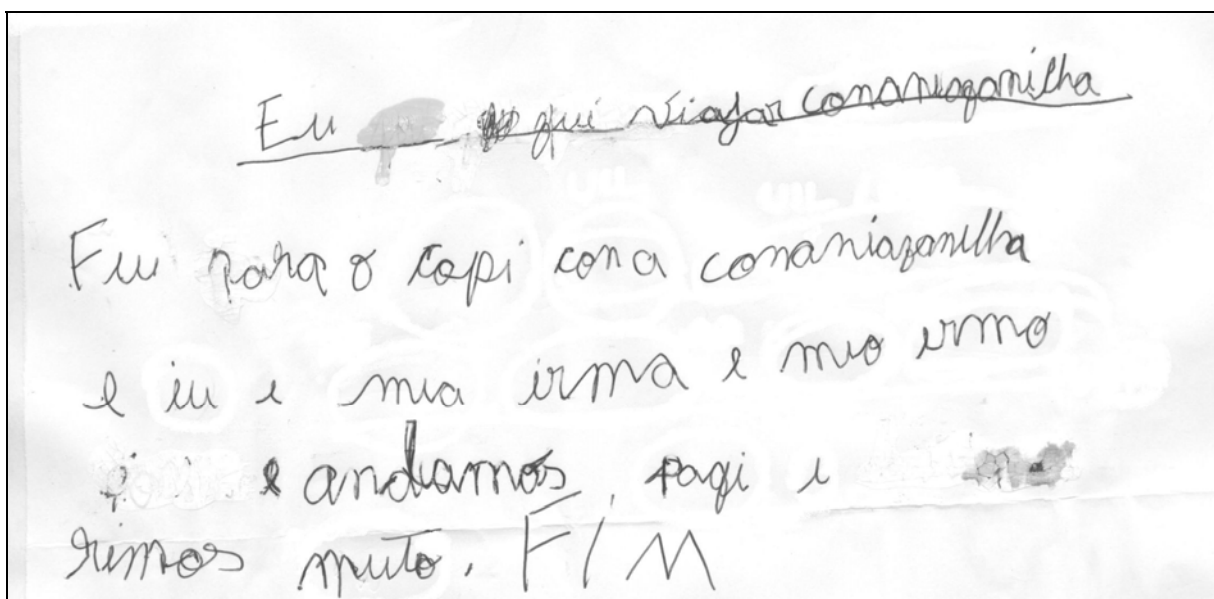 Eu qui viajar conaniazanilha
Fui para o copi con a conaniazanilha
e iu e mia irma e mio irmo
e andiamos pagi i
rimos muto. FIM